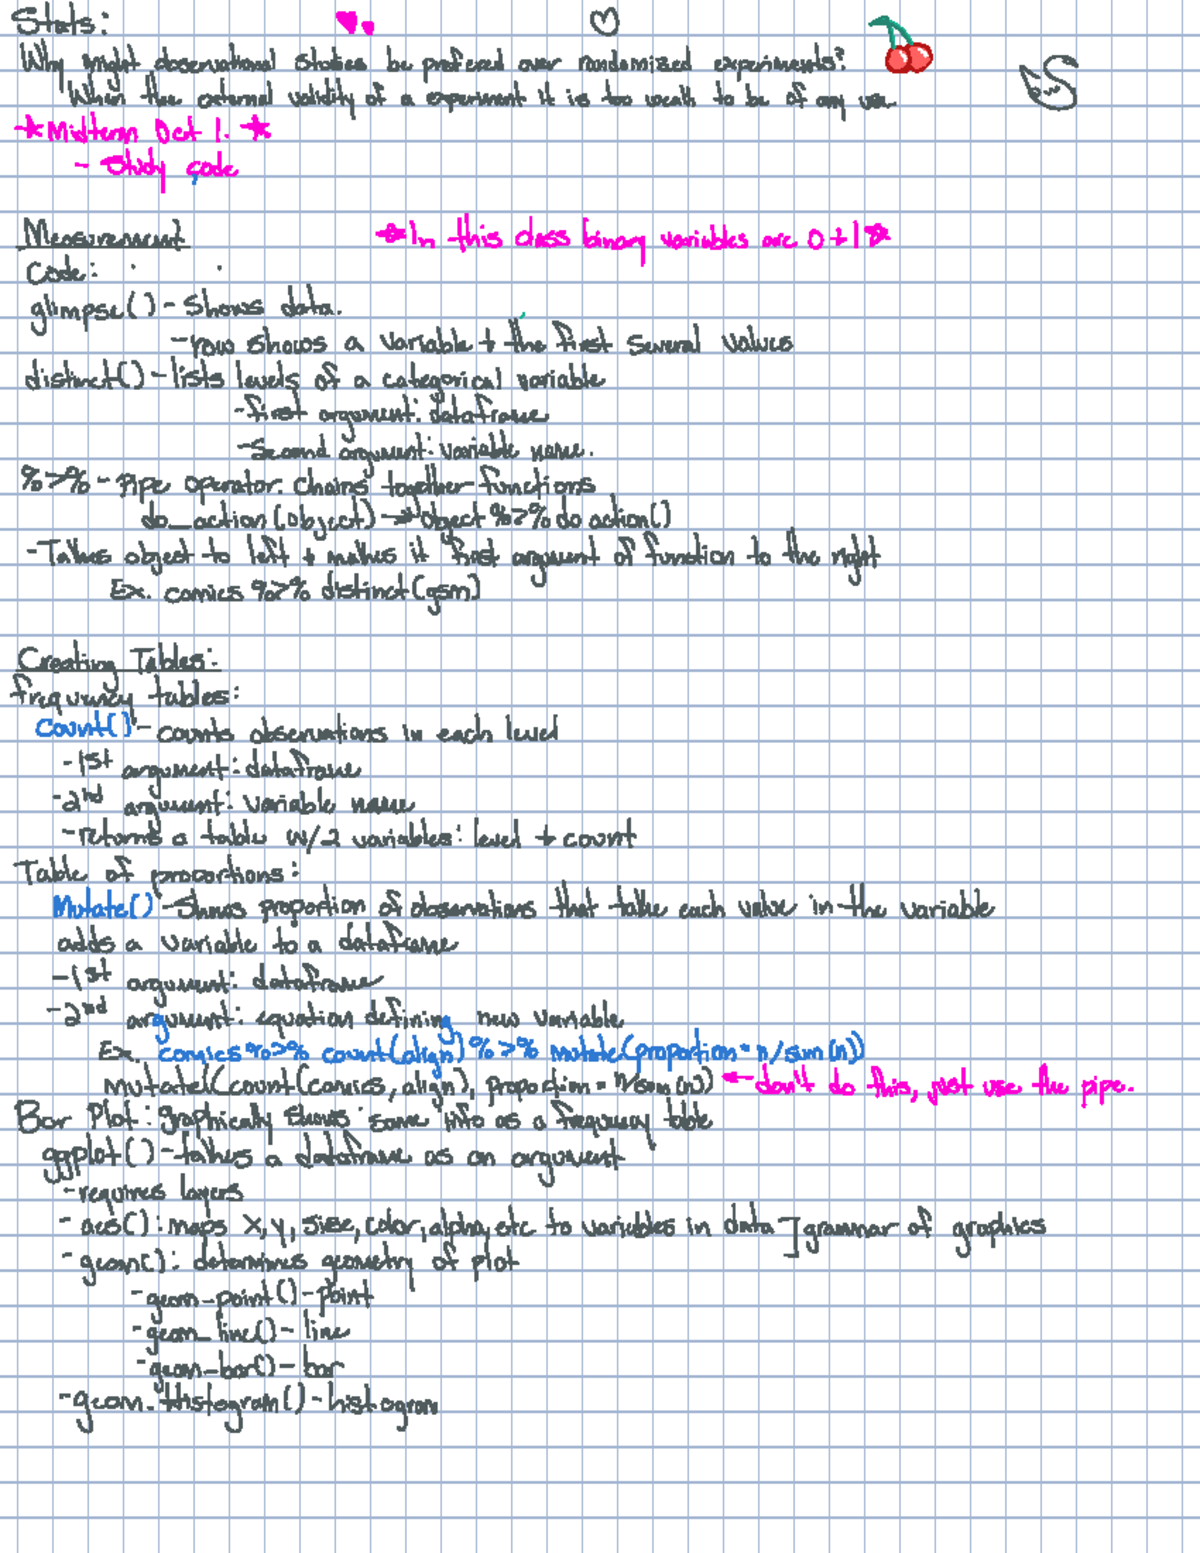 Stats:
Why might observational studies be prefered over randomized experiments?
When the external validity of a experiment it is too weak to be of any use.
★Midterm Oct 1. ★
- Study code
Measurement
★In this class binary variables are 0 + 1★
Code:
glimpse() - Shows data.
- row shows a variable + the first several values
distinct() - lists levels of a categorical variable
- first argument: dataframe
- Second argument: variable name.
%>% - Pipe operator. Chains together functions
do_action(object) → object %>% do action()
- Takes object to left + makes it first argument of function to the right
Ex. comics %>% distinct(gsm)
Creating Tables:
frequency tables:
Count() - counts observations in each level
- 1st argument: dataframe
- 2nd argument: variable name
- returns a table w/2 variables: level + count
Table of proportions:
Mutate() - Shows proportion of observations that take each value in the variable
adds a variable to a dataframe
- 1st argument: dataframe
- 2nd argument: equation defining new variable
Ex. comics %>% count(align) %>% mutate(proportion = n/sum(n))
mutatel(count(comics, align), proportion = n/sum(n)) ← don't do this, just use the pipe.
Bar Plot: graphically shows same info as a frequency table
ggplot() - takes a dataframe as an argument
- requires layers
- aes(): maps x, y, size, color, alpha, etc to variables in data ] grammar of graphics
- geom(): determines geometry of plot
- geom_point() - point
- geom_line() - line
- geom_bar() - bar
- geom_Histogram() - histogram